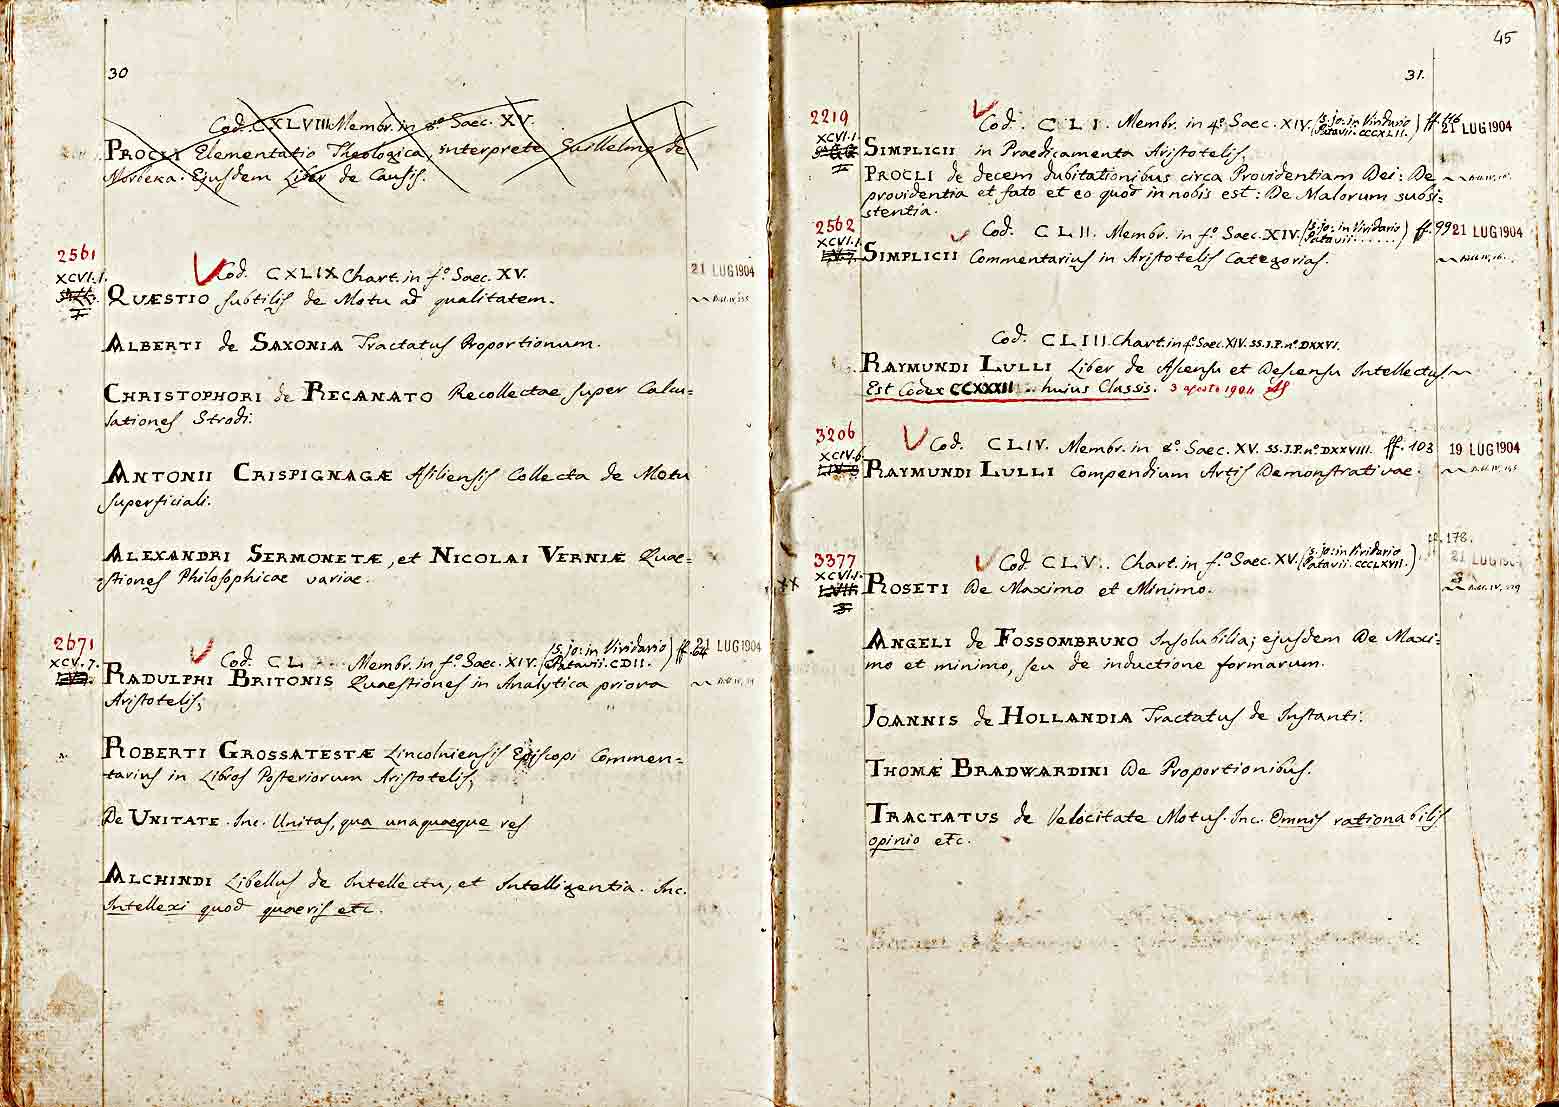 30
Cod. CXLVIII Membr. in 8.º Saec. XV.
PROCLI Elementatio Theologica, interprete Guillelmo de
Morbeka. Ejusdem Liber de Causis.
2561
XCVI.1.
Cod. CXLIX Chart. in f.º Saec. XV.
21 LUG 1904
QUÆSTIO subtilis de Motu ad qualitatem.
ALBERTI de SAXONIA Tractatus Proportionum.
CHRISTOPHORI de RECANATO Recollectae super Calcu=
lationes Strodi.
ANTONII CRISPIGNAGÆ Asiliensis Collecta de Motu
superficiali.
ALEXANDRI SERMONETÆ, et NICOLAI VERNIÆ Quae=
stiones Philosophicae variae.
2671
XCV.7.
Cod. CL Membr. in f.º Saec. XIV. (S. Jo: in Viridario
Patavii. CDII.) ff. 64
21 LUG 1904
RADULPHI BRITONIS Quaestiones in Analytica priora
Aristotelis;
ROBERTI GROSSATESTÆ Lincolniensis Episcopi Commen=
tarius in Libros Posteriorum Aristotelis;
De UNITATE. Inc. Unitas, qua unaquaeque res
ALCHINDI Libellus de Intellectu, et Intelligentia. Inc.
Intellexi quod quaeris etc.
45
31.
2219
XCVI.1.
Cod. CLI. Membr. in 4.º Saec. XIV. (S. Jo: in Viridario
Patavii. CCCXLII.) ff. 116
21 LUG 1904
SIMPLICII in Praedicamenta Aristotelis.
PROCLI de decem dubitationibus circa Providentiam Dei: De
providentia et fato et eo quod in nobis est: De Malorum subsi=
stentia.
2562
XCVI.1.
Cod. CLII. Membr. in f.º Saec. XIV. (S. Jo: in Viridario
Patavii.......) ff. 99
21 LUG 1904
SIMPLICII Commentarius in Aristotelis Categorias.
Cod. CLIII Chart. in 4.º Saec. XIV. SS. J. P. n.º DXXVI.
RAYMUNDI LULLI Liber de Ascensu et Descensu Intellectus.
Est Codex CCXXXII .. huius Classis. 3 agosto 1904
3206
XCIV.6
Cod. CLIV. Membr. in 8.º Saec. XV. SS. J. P. n.º DXXVIII. ff. 103
19 LUG 1904
RAYMUNDI LULLI Compendium Artis Demonstrativae.
3377
XCVI.1.
Cod. CLV. Chart. in f.º Saec. XV. (S. Jo: in Viridario
Patavii. CCCLXVII.)
ff. 178.
21 LUG 1904
ROSETI De Maximo et Minimo.
ANGELI de FOSSOMBRUNO Insolubilia; ejusdem De Maxi=
mo et minimo, seu de inductione formarum.
JOANNIS de HOLLANDIA Tractatus de Instanti.
THOMÆ BRADWARDINI De Proportionibus.
TRACTATUS de Velocitate Motus. Inc. Omnis rationabilis
opinio etc.